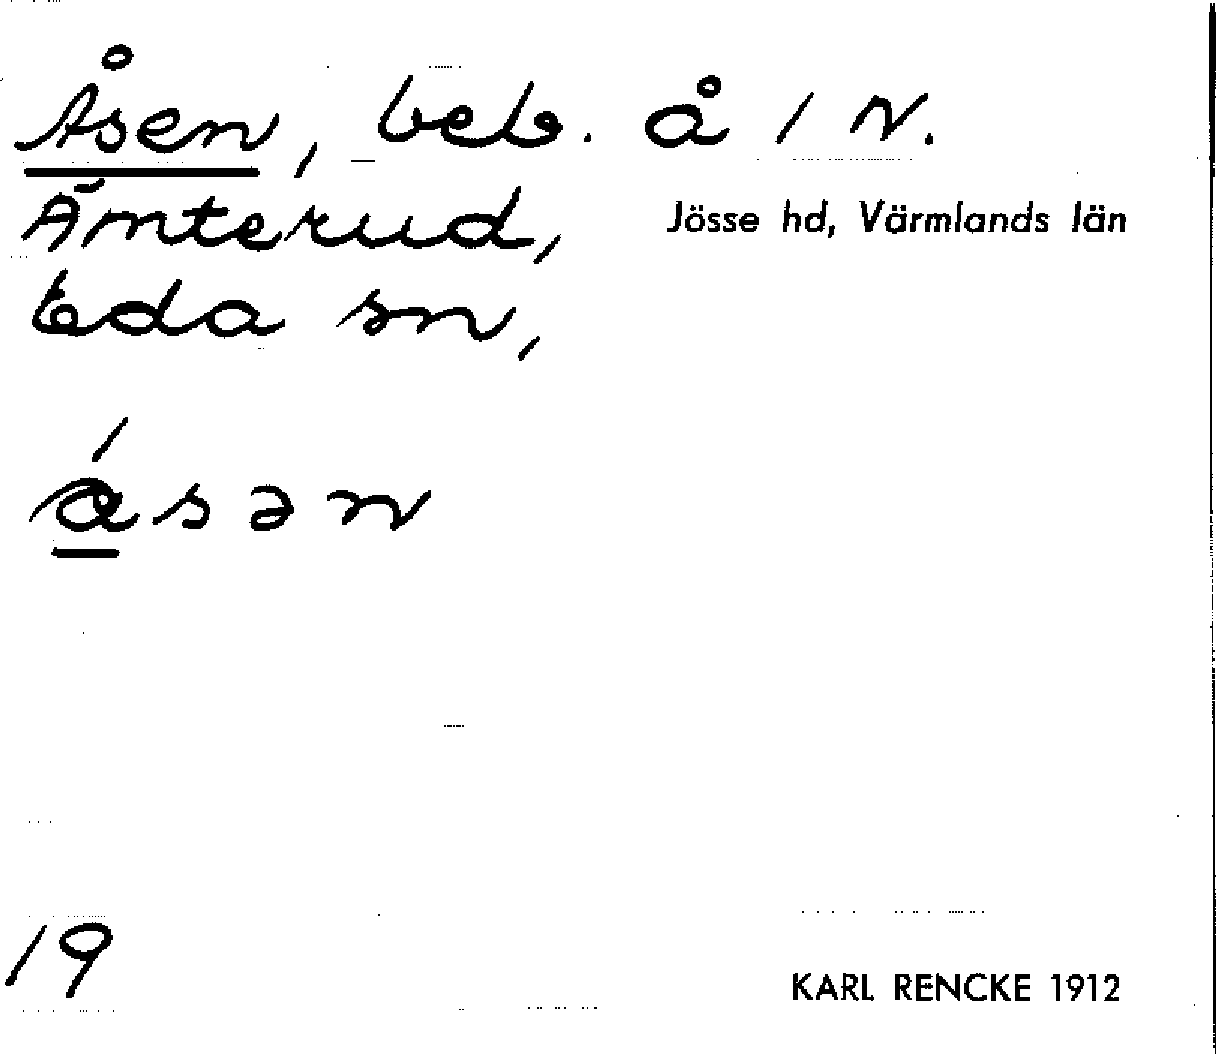 Åsen, beb. å 1 N.
Ämterud,
Jösse hd, Värmlands län
Eda sn,
åsən
19
KARL RENCKE 1912